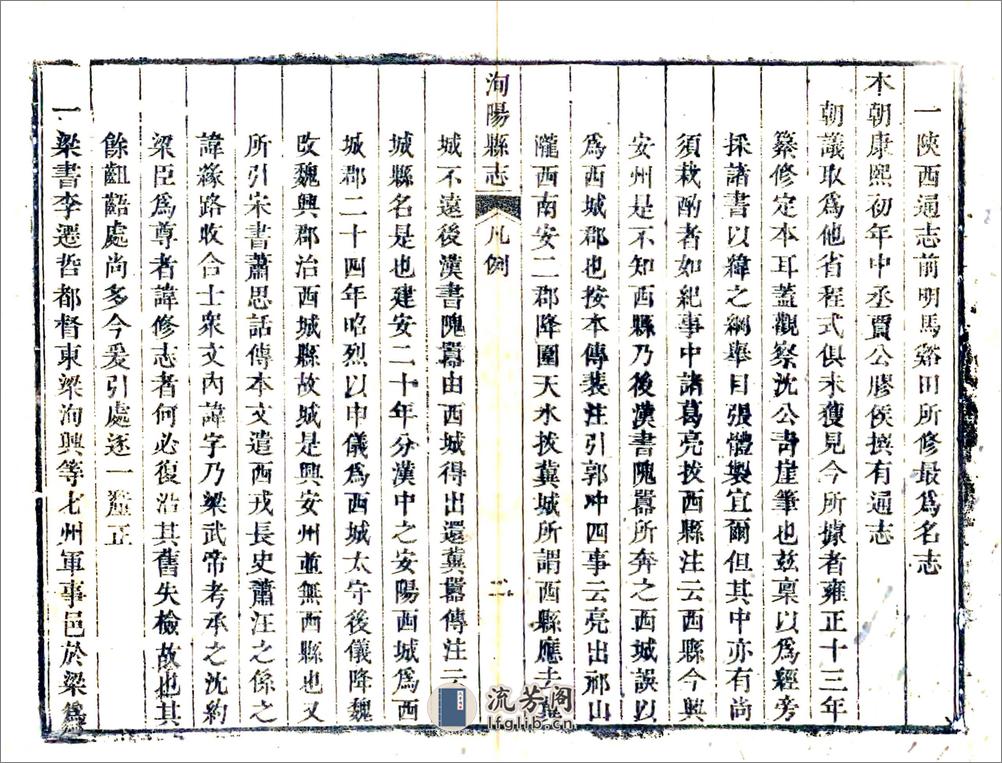 一陝西通志前明馬谿田所修最爲名志
本朝康熙初年中丞賈公膠侯撰有通志
朝議取爲他省程式俱未獲見今所據者雍正十三年
纂修定本耳蓋觀察沈公靑崖筆也玆稟以爲經旁
採諸書以緯之綱舉目張體製宜爾但其中亦有尚
須裁酌者如紀事中諸葛亮拔西縣注云西縣今興
安州是不知西縣乃後漢書隗囂所奔之西城誤以
爲西城郡也按本傳裴注引郭冲四事云亮出祁山
隴西南安二郡降圍天水拔冀城所謂西縣應去冀
洵陽縣志 凡例 二
城不遠後漢書隗囂由西城得出還冀囂傳注云西
城縣名是也建安二十年分漢中之安陽西城爲西
城郡二十四年昭烈以申儀爲西城太守後儀降魏
改魏興郡治西城縣故城是興安州並無西縣也又
所引宋書蕭思話傳本文遣西戎長史蕭汪之係之
諱緣路收合士衆文內諱字乃梁武帝考承之沈約
梁臣爲尊者諱修志者何必復沿其舊失檢故也其
餘齟齬處尚多今爰引處逐一釐正
一梁書李遷哲都督東梁洵興等七州軍事邑於梁爲
流芳阁
lfglib.cn